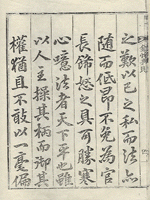 之歎以已之私而法亦
隨而低昂不免為官
長飭恕之具可勝寒
心噫法者天下平也雖
以人主操其柄而御其
權猶且不敢以一毫偏